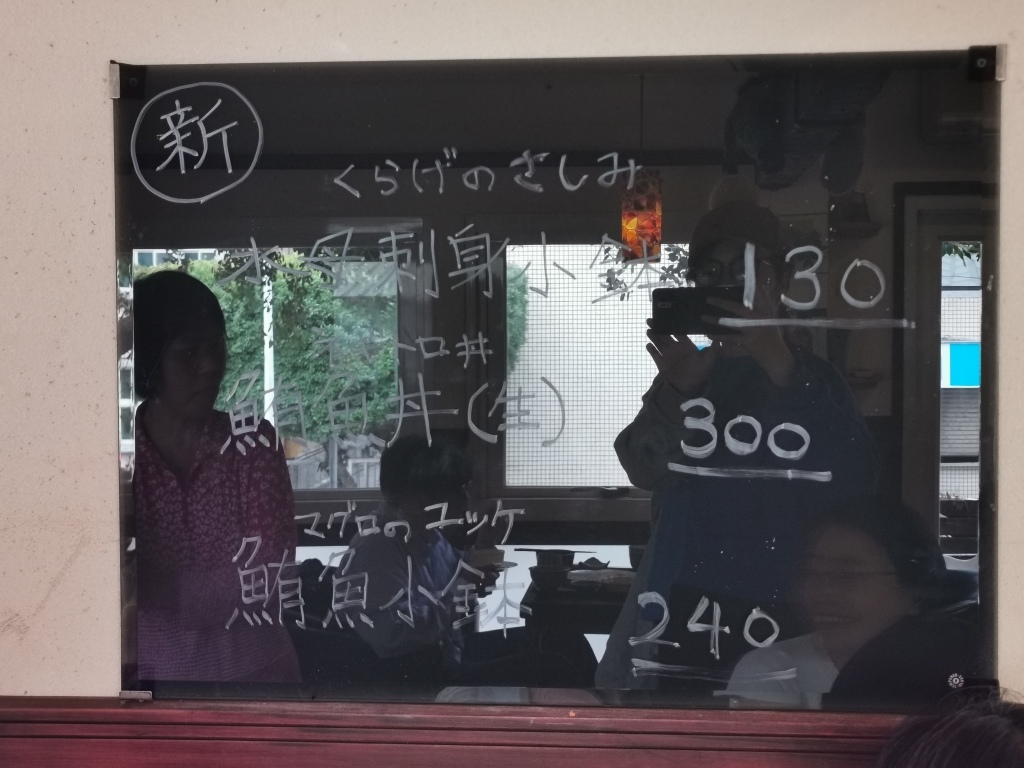 新
くらげのさしみ
水母刺身小鉢 130
トロ丼
鮪魚丼(生) 300
マグロのユッケ
鮪魚小鉢 240